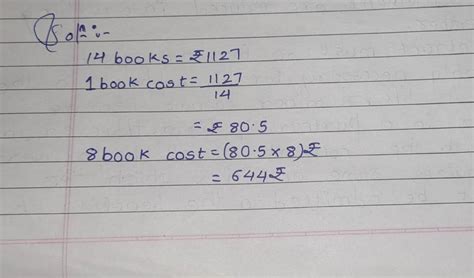 Solⁿ:-
14 books = ₹1127
1 book cost = 1127
14
= ₹ 80.5
8 book cost = (80.5 x 8)₹
= 644₹